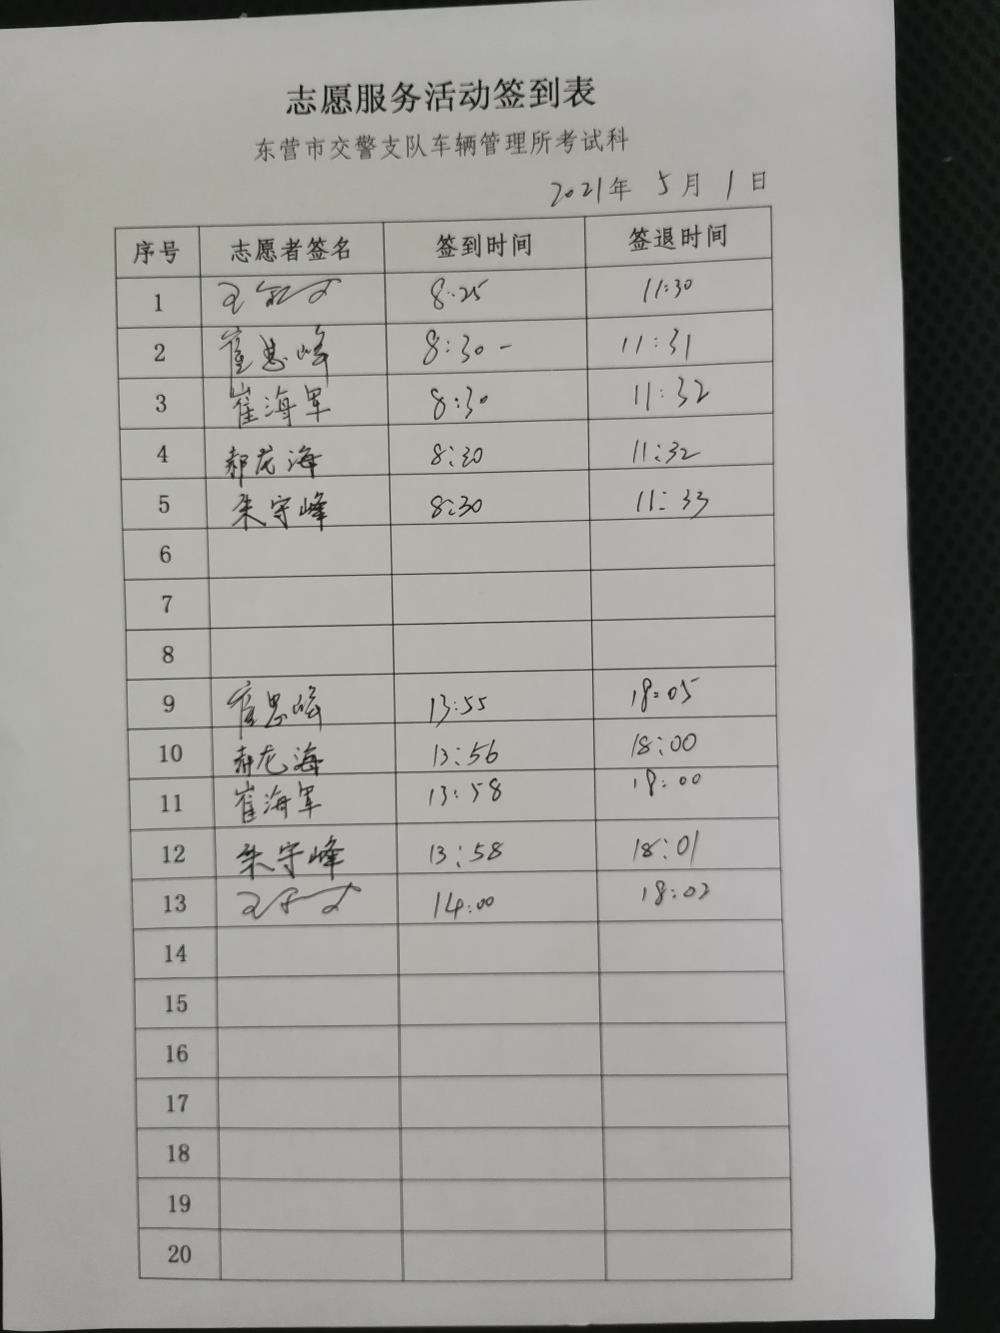 志愿服务活动签到表
东营市交警支队车辆管理所考试科
2021年 5月 1日
序号 志愿者签名 签到时间 签退时间
1 8:25 11:30
2 崔思峰 8:30 - 11:31
3 崔海军 8:30 11:32
4 郝龙海 8:30 11:32
5 朱守峰 8:30 11:33
6
7
8
9 崔思峰 13:55 18:05
10 郝龙海 13:56 18:00
11 崔海军 13:58 18:00
12 朱守峰 13:58 18:01
13 14:00 18:02
14
15
16
17
18
19
20